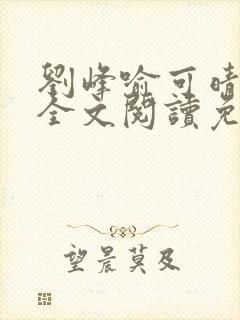 劉峰喻可晴
全文閱讀免
望晨莫及